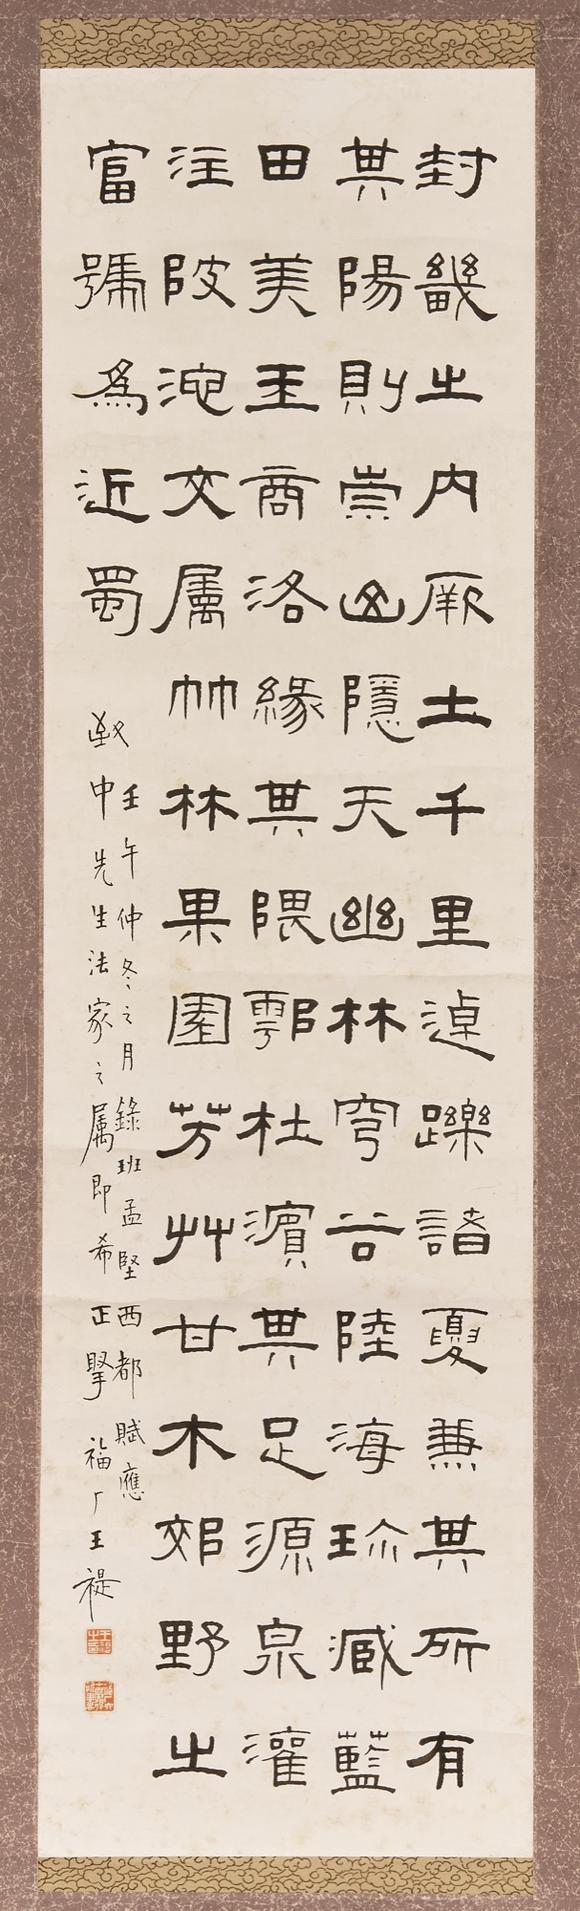 封畿之内厥土千里逴躒諸夏兼其所有
其陽則崇山隱天幽林穹谷陸海珍臧藍
田美玉商洛緣其隈鄠杜濱其足源泉灌
注陂池交屬竹林果園芳艸甘木郊野之
富號爲近蜀
壬午仲冬之月錄班孟堅西都賦應
中先生法家之属即希正掔福厂王禔